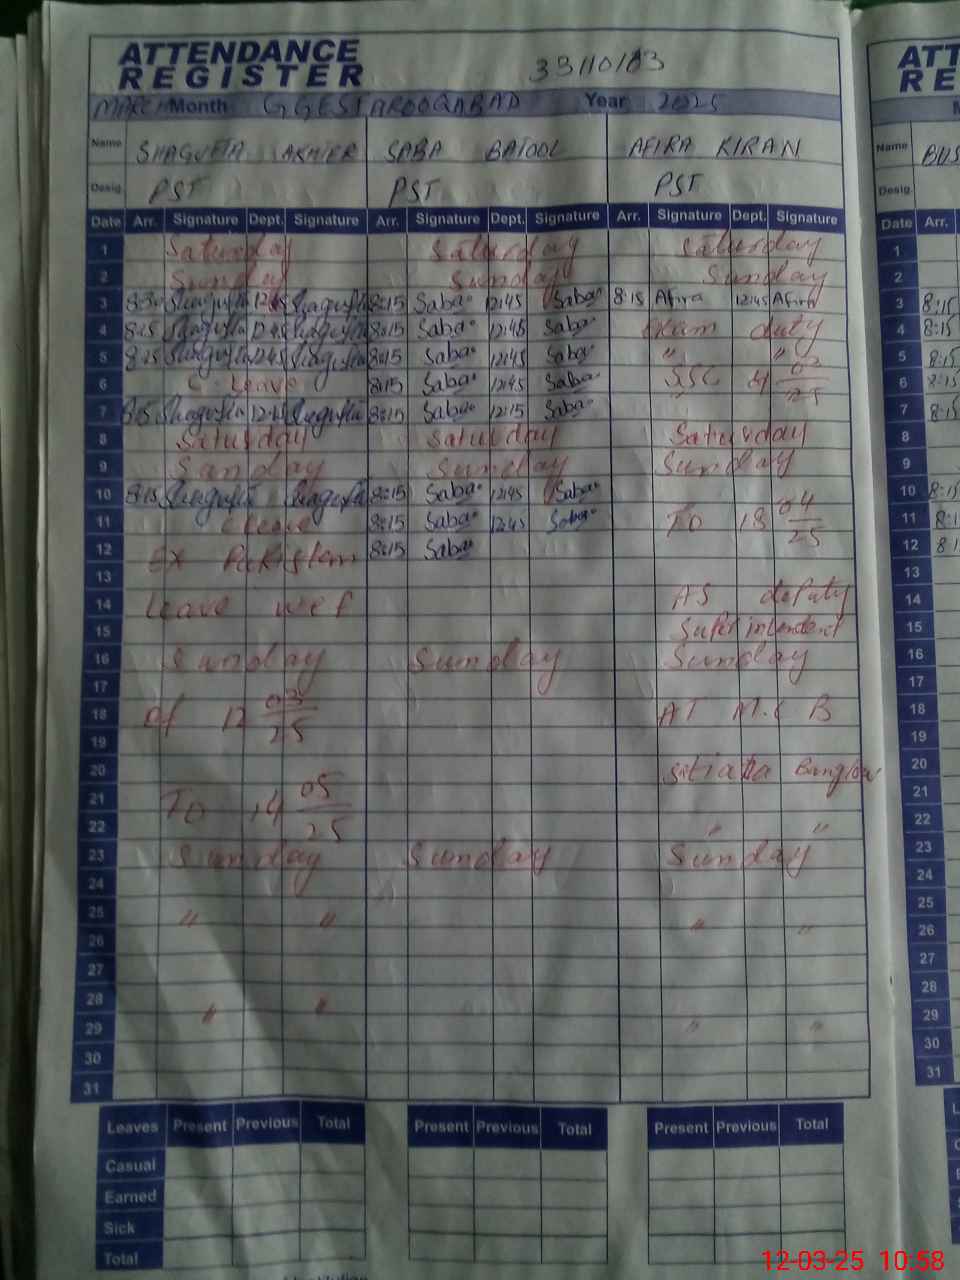 ATTENDANCE
REGISTER
33110183
MARCH Month GGES FAROOQABAD Year 2025
Name SHAGUFTA AKHTER SABA BATOOL AFIRA KIRAN
Desig. PST PST PST
Date Arr. Signature Dept. Signature Arr. Signature Dept. Signature Arr. Signature Dept. Signature
1 Saturday Saturday Saturday
2 Sunday Sunday Sunday
3 8:30 Shagufta 12:45 Shagufta 8:15 Saba 12:45 Saba 8:15 Afira 12:45 Afira
4 8:25 Shagufta 12:45 Shagufta 8:15 Saba 12:45 Saba Exam duty
5 8:25 Shagufta 12:45 Shagufta 8:15 Saba 12:45 Saba " "
6 C. Leave 8:15 Saba 12:45 Saba SSC 4 03/25
7 8:15 Shagufta 12:15 Shagufta 8:15 Saba 12:15 Saba
8 Saturday Saturday Saturday
9 Sunday Sunday Sunday
10 8:15 Shagufta Shagufta 8:15 Saba 12:45 Saba
11 C Leave 8:15 Saba 12:45 Saba TO 18 04/25
12 Ex Pakistan 8:15 Saba
13
14 Leave wef AS deputy
15 Superintendent
16 Sunday Sunday Sunday
17
18 of 12 03/25 AT M.C B
19
20 sitiana Banglow
21 TO 14 05/25
22 " "
23 Sunday Sunday Sunday
24
25 " " " "
26
27
28 " "
29 " "
30
31
Leaves Present Previous Total Present Previous Total Present Previous Total
Casual
Earned
Sick
Total
12-03-25 10:58
ATT
RE
Name BUS
Desig.
Date Arr.
1
2
3 8:15
4 8:15
5 8:15
6 8:15
7 8:15
8
9
10 8:15
11
12
13
14
15
16
17
18
19
20
21
22
23
24
25
26
27
28
29
30
31